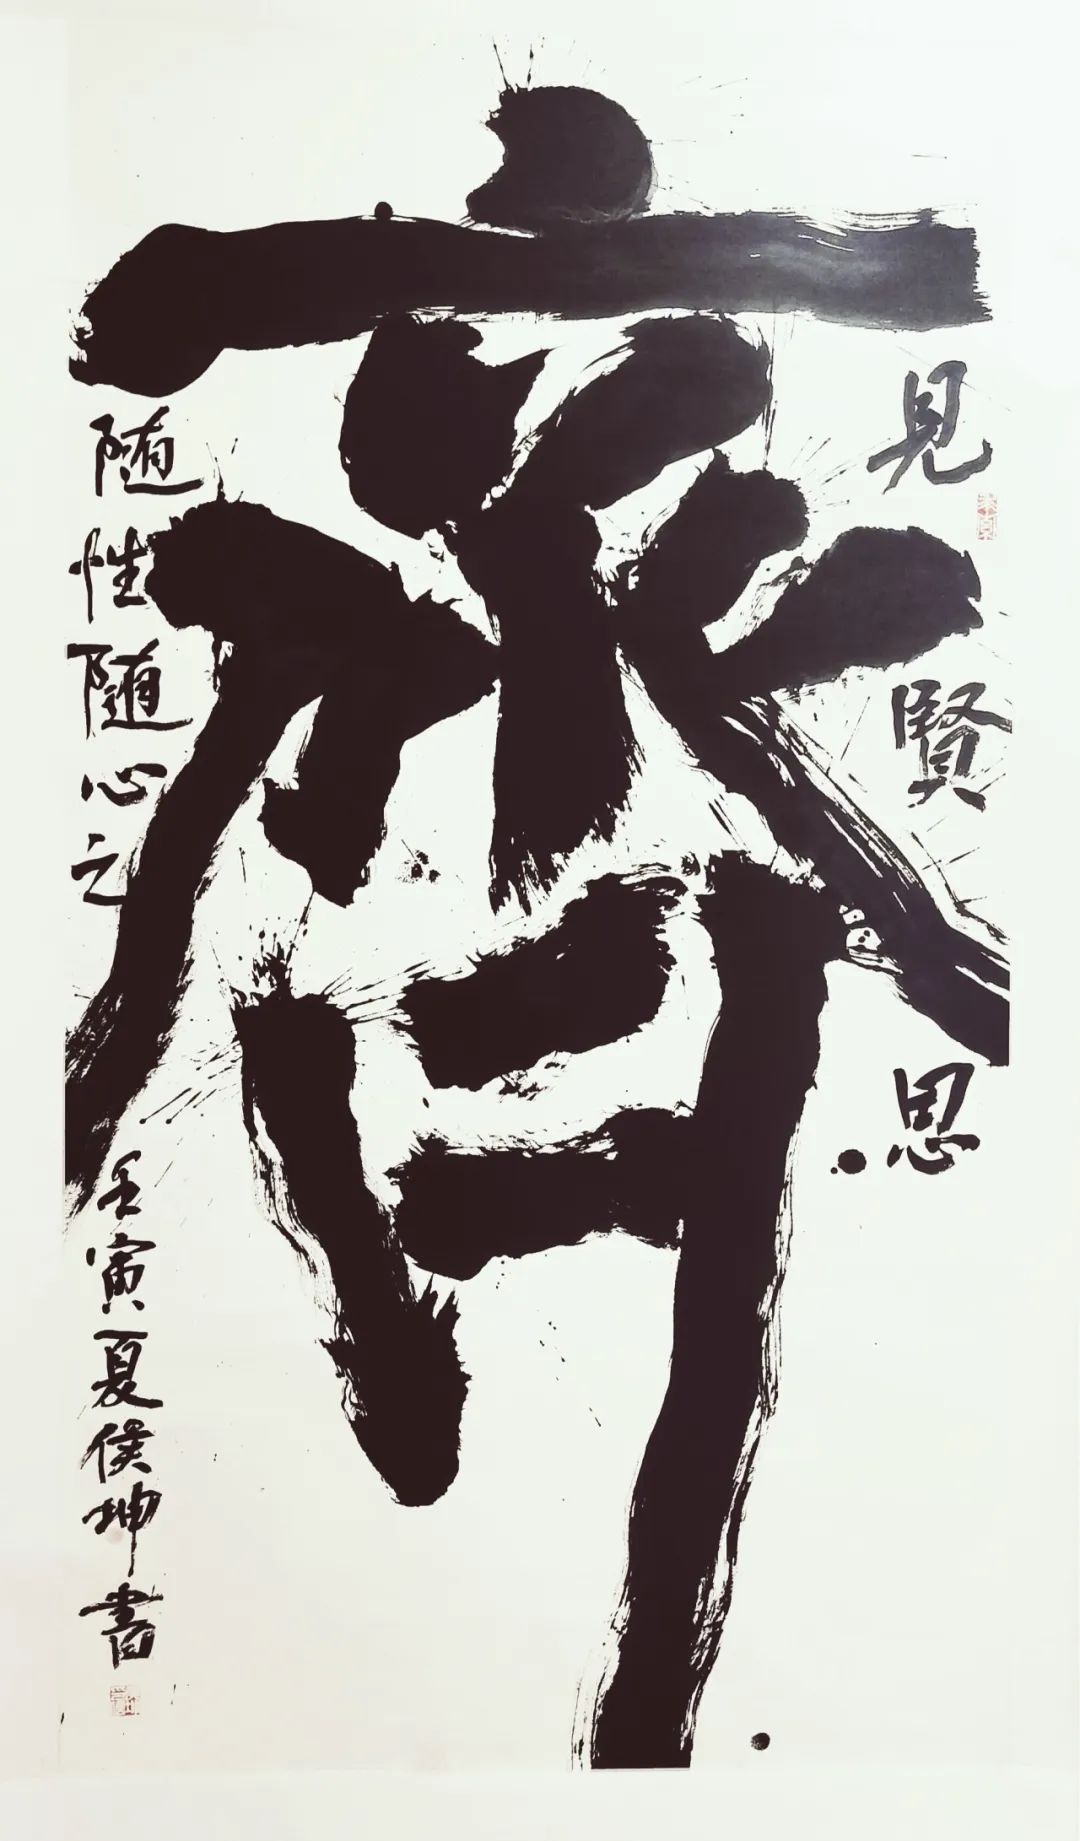 見賢思
齊
随性随心之
壬寅夏侯坤書